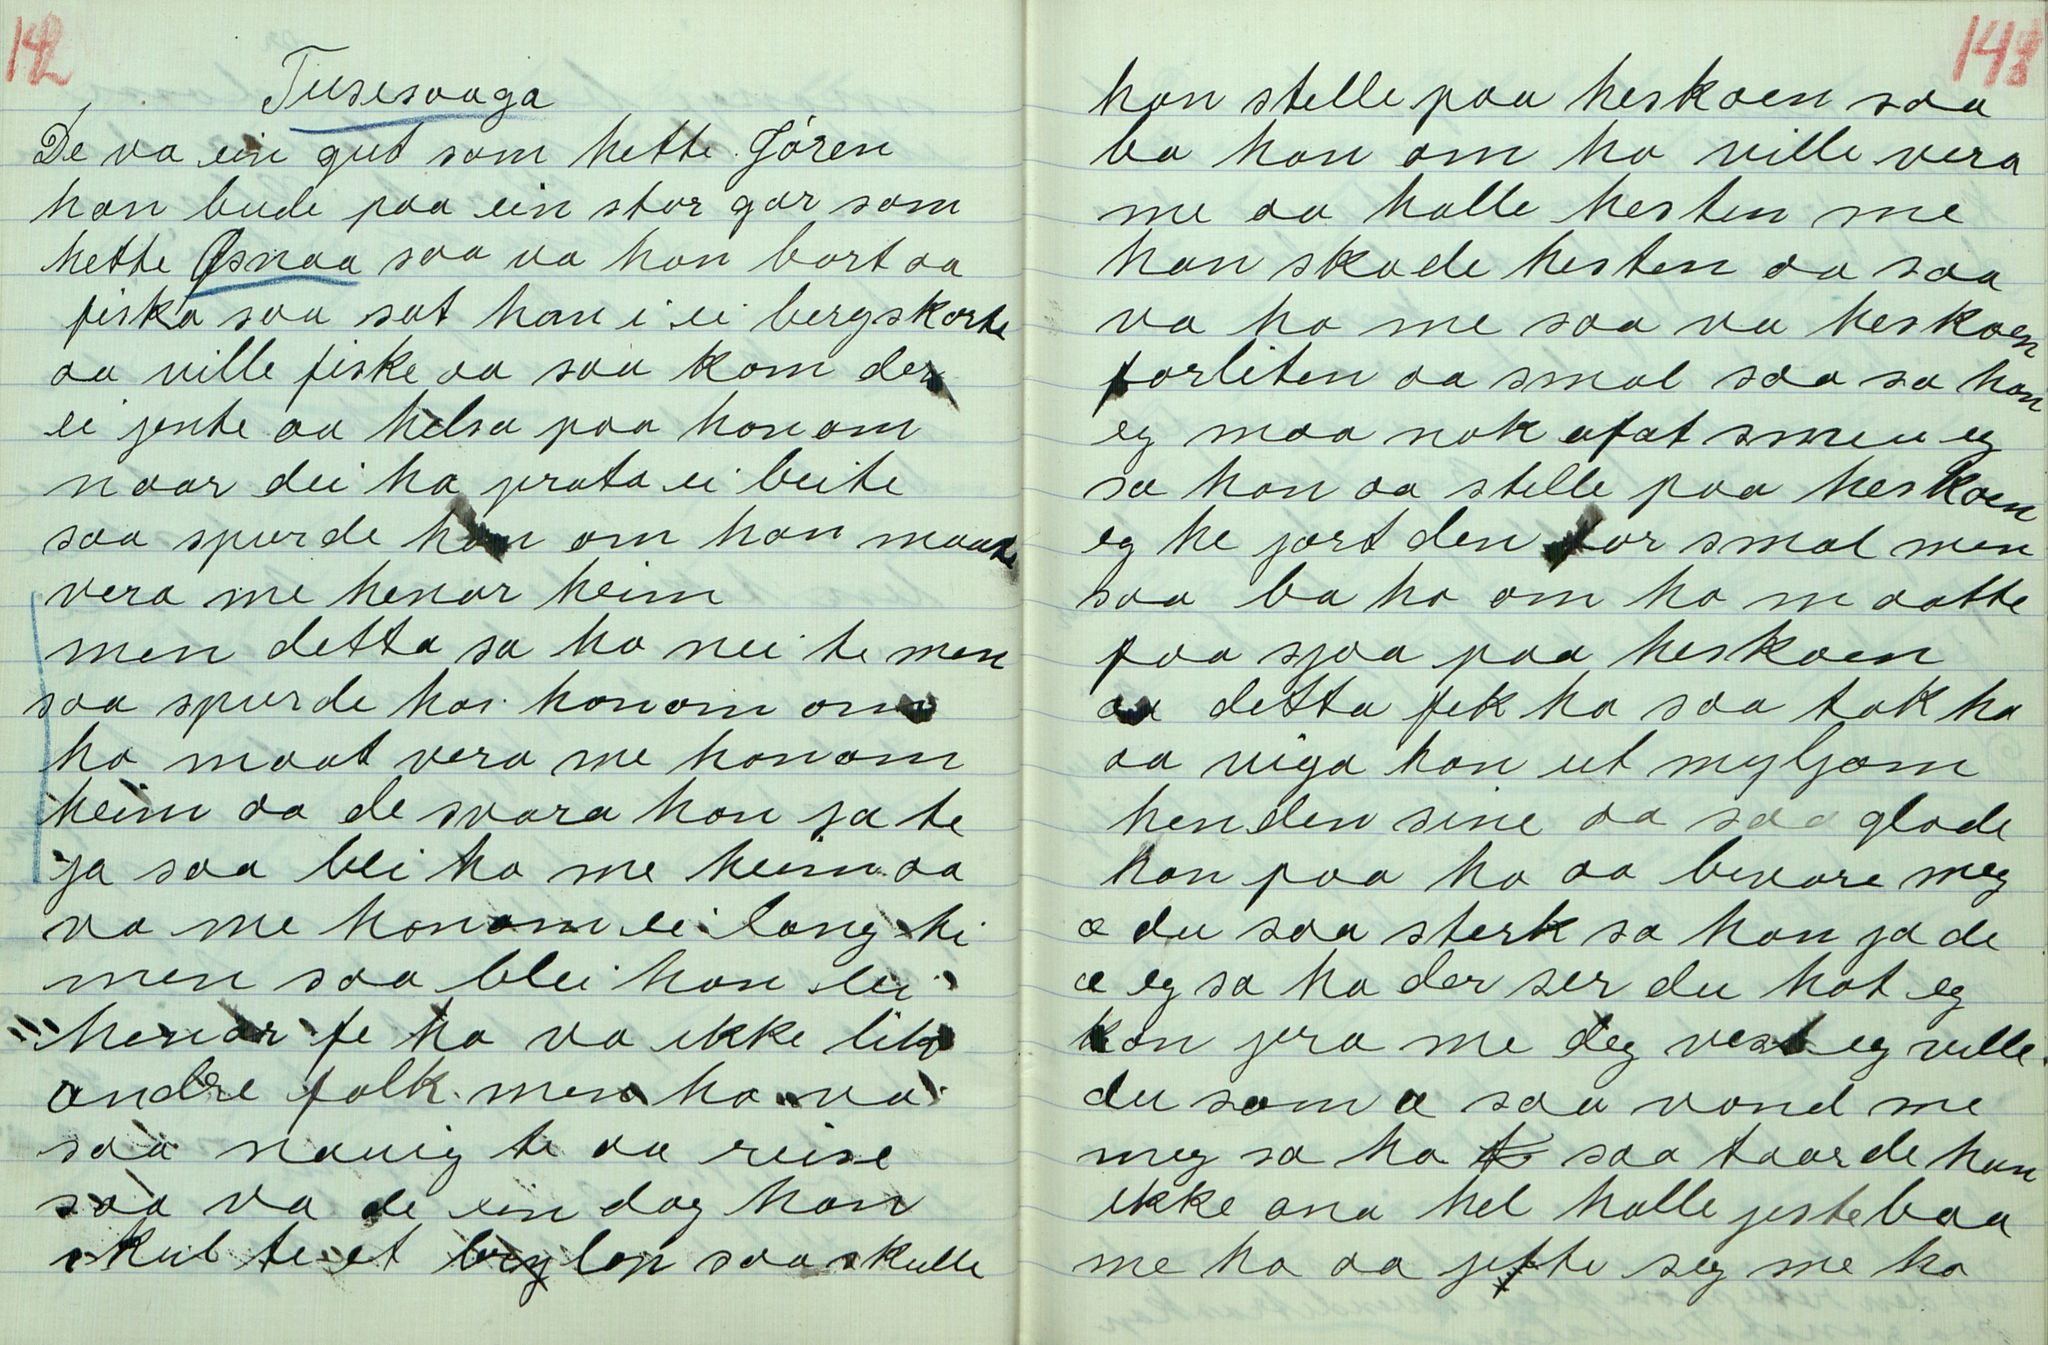 142
Tusesaaga
De va ein gut som hette Jören
han bude paa ein stor gar som
hette Osnaa saa va han bort aa
fiska saa sat han i ei bergskorte
aa ville fiske aa saa kom der
ei jente aa helsa paa honom
naar dei ha prata ei beite
saa spurde han om han maatte
vera me henar heim
men detta sa ho nei te men
saa spurde hoi honom om
ho maat vera me honom
heim aa de svara han ja te
ja saa blei ho me heim aa
va me honom ei lang ti
men saa blei han lei
henar fe ho va ikke lik
andre folk men ho va
saa nauig te aa reise
saa va de ein dag han
skul te et brylop saa skulle
143
han stelle paa heskoen saa
ba han om ho ville vera
me aa halle hesten me
han skode hesten aa saa
va ho me saa va heskoen
forliten aa smal saa sa han
eg maa nok afat smeu eg
sa han aa stelle paa heskoen
eg he jort den for smal men
saa ba ho om ho maatte
faa sjaa paa heskoen
aa detta fek ho saa tok ho
aa viga han ut myljom
henden sine aa saa glode
han paa ho aa bevare meg
æ du saa sterk sa han ja de
æ eg sa ho der ser du hot eg
kan jera me deg vest eg ville
du som æ saa vond me
meg sa ho saa taarde han
ikke ana hel halle jestebaa
me ho aa jifte seg me ho